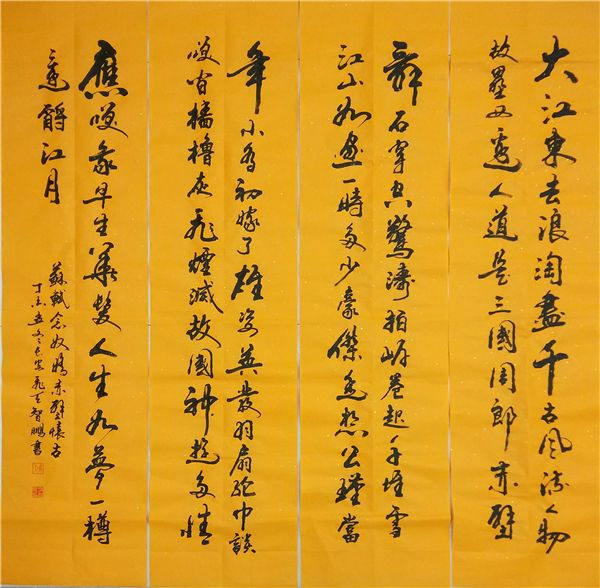 大江東去浪淘盡千古風流人物
故壘西邊人道是三國周郎赤壁
亂石穿空驚濤拍岸卷起千堆雪
江山如畫一時多少豪傑遙想公瑾當
年小喬初嫁了雄姿英發羽扇綸巾談
笑間檣櫓灰飛煙滅故國神遊多情
應笑我早生華髮人生如夢一樽
還酹江月
蘇軾念奴嬌赤壁懷古
智鵬書